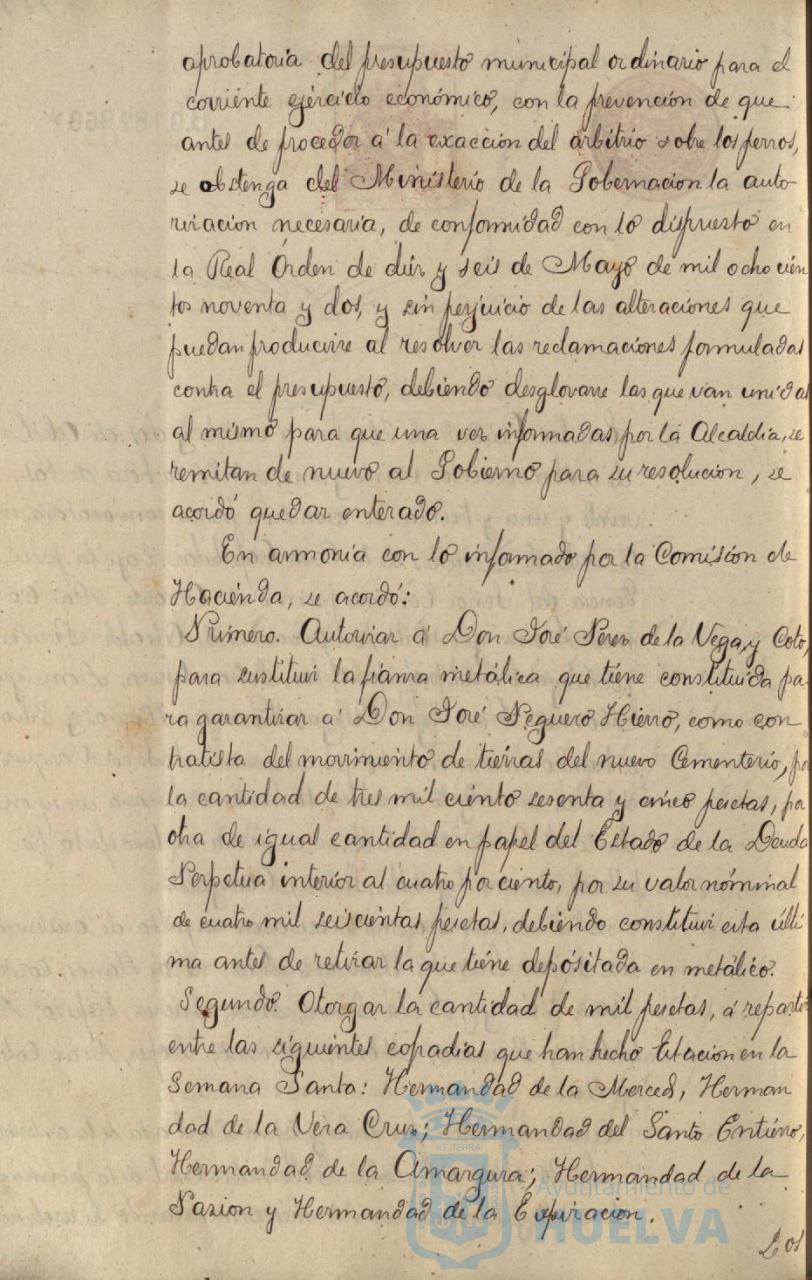 aprobatoria del presupuesto municipal ordinario para el
corriente ejercicio económico, con la prevención de que
antes de proceder á la exacción del arbitrio sobre los perros,
se obtenga del Ministerio de la Gobernacion la auto-
rización necesaria, de conformidad con lo dispuesto en
la Real Orden de diez y seis de Mayo de mil ochocien
tos noventa y dos, y sin perjuicio de las alteraciones que
puedan producirse al resolver las reclamaciones formuladas
contra el presupuesto, debiendo desglosarse las que van unidas
al mismo para que una vez informadas por la Alcaldía, se
remitan de nuevo al Gobierno para su resolucion, se
acordó quedar enterado.
En armonía con lo informado por la Comisión de
Hacienda, se acordó:
Primero. Autorizar á Don José Perez de la Vega y Coto,
para sustituir la fianza metálica que tiene constituida pa-
ra garantizar á Don José Peguero Hierro, como con
tratista del movimiento de tierras del nuevo Cementerio, por
la cantidad de tres mil ciento sesenta y cinco pesetas, por
otra de igual cantidad en papel del Estado de la Deuda
Perpetua interior al cuatro por ciento, por su valor nóminal
de cuatro mil seiscientas pesetas, debiendo constituir esta últi
ma antes de retirar la que tiene depositada en metálico.
Segundo. Otorgar la cantidad de mil pesetas, á repartir
entre las siguientes cofradías que han hecho Estacion en la
Semana Santa: Hermandad de la Merced, Herman
dad de la Vera Cruz; Hermandad del Santo Entierro,
Hermandad de la Amargura; Hermandad de la
Pasion y Hermandad de la Expiracion.
Dos
Ayuntamiento de
HUELVA